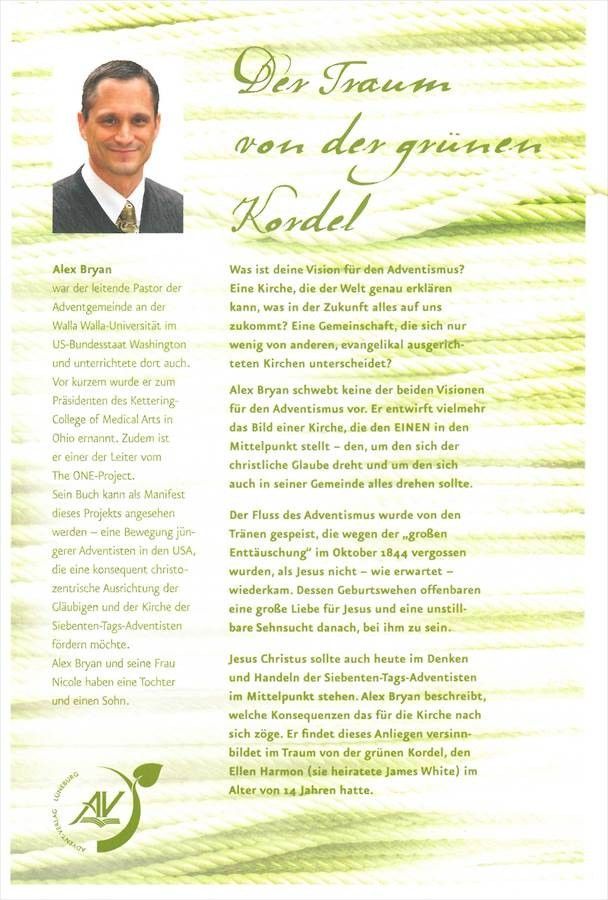 Der Traum
von der grünen
Kordel
Alex Bryan
war der leitende Pastor der
Adventgemeinde an der
Walla Walla-Universität im
US-Bundesstaat Washington
und unterrichtete dort auch.
Vor kurzem wurde er zum
Präsidenten des Kettering-
College of Medical Arts in
Ohio ernannt. Zudem ist
er einer der Leiter vom
The ONE-Project.
Sein Buch kann als Manifest
dieses Projekts angesehen
werden – eine Bewegung jün-
gerer Adventisten in den USA,
die eine konsequent christo-
zentrische Ausrichtung der
Gläubigen und der Kirche der
Siebenten-Tags-Adventisten
fördern möchte.
Alex Bryan und seine Frau
Nicole haben eine Tochter
und einen Sohn.
Was ist deine Vision für den Adventismus?
Eine Kirche, die der Welt genau erklären
kann, was in der Zukunft alles auf uns
zukommt? Eine Gemeinschaft, die sich nur
wenig von anderen, evangelikal ausgerich-
teten Kirchen unterscheidet?
Alex Bryan schwebt keine der beiden Visionen
für den Adventismus vor. Er entwirft vielmehr
das Bild einer Kirche, die den EINEN in den
Mittelpunkt stellt – den, um den sich der
christliche Glaube dreht und um den sich
auch in seiner Gemeinde alles drehen sollte.
Der Fluss des Adventismus wurde von den
Tränen gespeist, die wegen der „großen
Enttäuschung“ im Oktober 1844 vergossen
wurden, als Jesus nicht – wie erwartet –
wiederkam. Dessen Geburtswehen offenbaren
eine große Liebe für Jesus und eine unstill-
bare Sehnsucht danach, bei ihm zu sein.
Jesus Christus sollte auch heute im Denken
und Handeln der Siebenten-Tags-Adventisten
im Mittelpunkt stehen. Alex Bryan beschreibt,
welche Konsequenzen das für die Kirche nach
sich zöge. Er findet dieses Anliegen versinn-
bildet im Traum von der grünen Kordel, den
Ellen Harmon (sie heiratete James White) im
Alter von 14 Jahren hatte.
AV
ADVENT-VERLAG LÜNEBURG